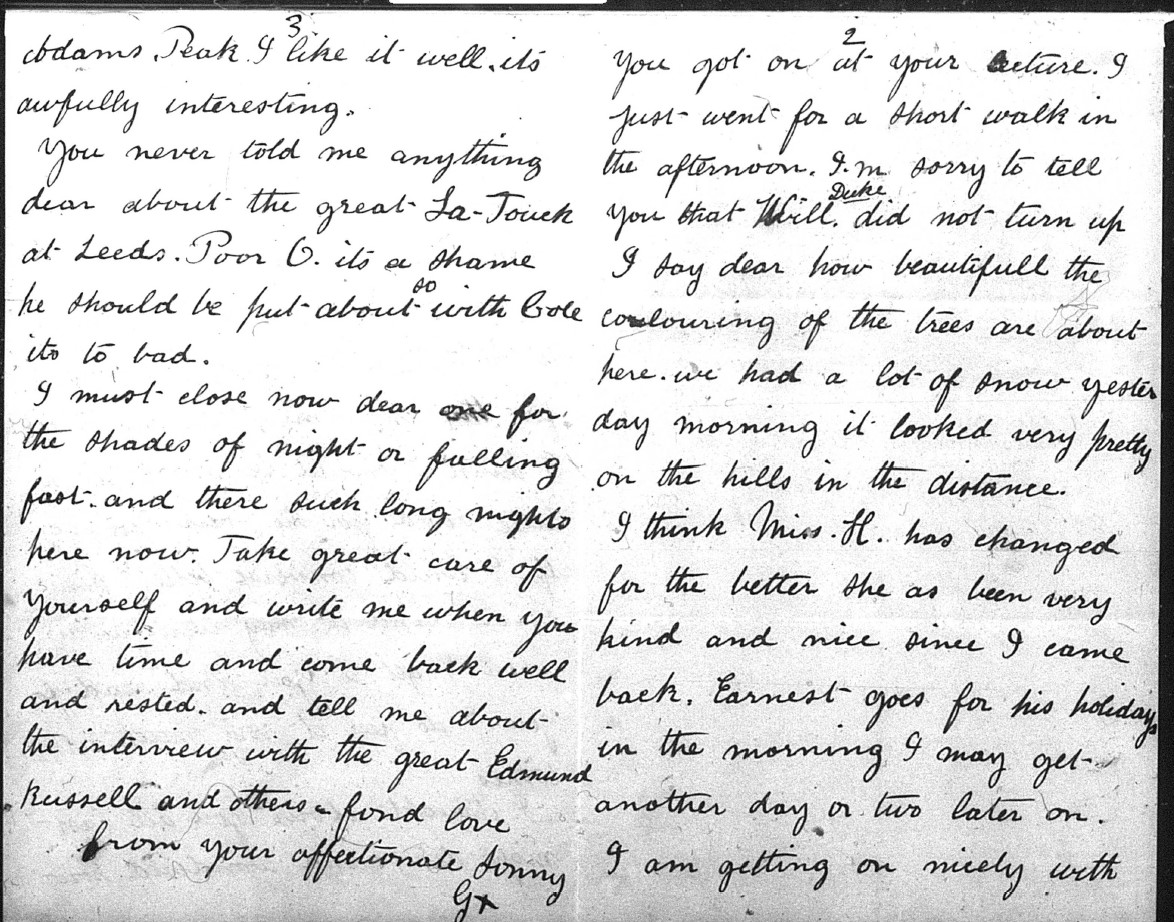 2
you got on at your lecture. I
just went for a short walk in
the afternoon. I.m sorry to tell
you that Will. Duke did not turn up
I say dear how beautifull the
coulouring of the trees are about
here. we had a lot of snow yester
day morning it looked very pretty
on the hills in the distance.
I think Miss. H. has changed
for the better she as been very
kind and nice since I came
back. Earnest goes for his holidays
in the morning I may get
another day or two later on.
I am getting on nicely with
3
Addams. Peak. I like it well. its
awfully interesting.
You never told me anything
dear about the great La-Touch
at Leeds. Poor O. its a shame
he should be put about so with Cole
its to bad.
I must close now dear one for
the shades of night or falling
fast. and there such long nights
here now. Take great care of
yourself and write me when you
have time and come back well
and rested. and tell me about
the interview with the great Edmund
Russell and others. fond love
from your affectionate Sonny
Gx